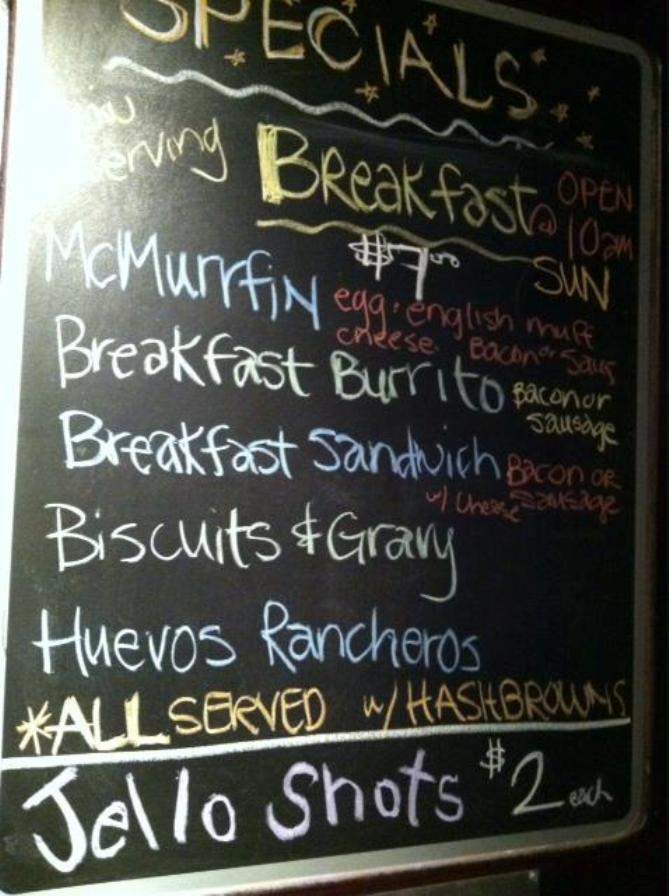 SPECIALS
Now Serving Breakfast
OPEN @ 10am SUN
$7.00
McMurrfiN egg. english muff
cheese. Bacon or Saus
Breakfast Burrito Bacon or sausage
Breakfast Sandwich Bacon or sausage
w/ Cheese
Biscuits & Gravy
Huevos Rancheros
*ALL SERVED w/ HASHBROWNS
Jello Shots $2 each